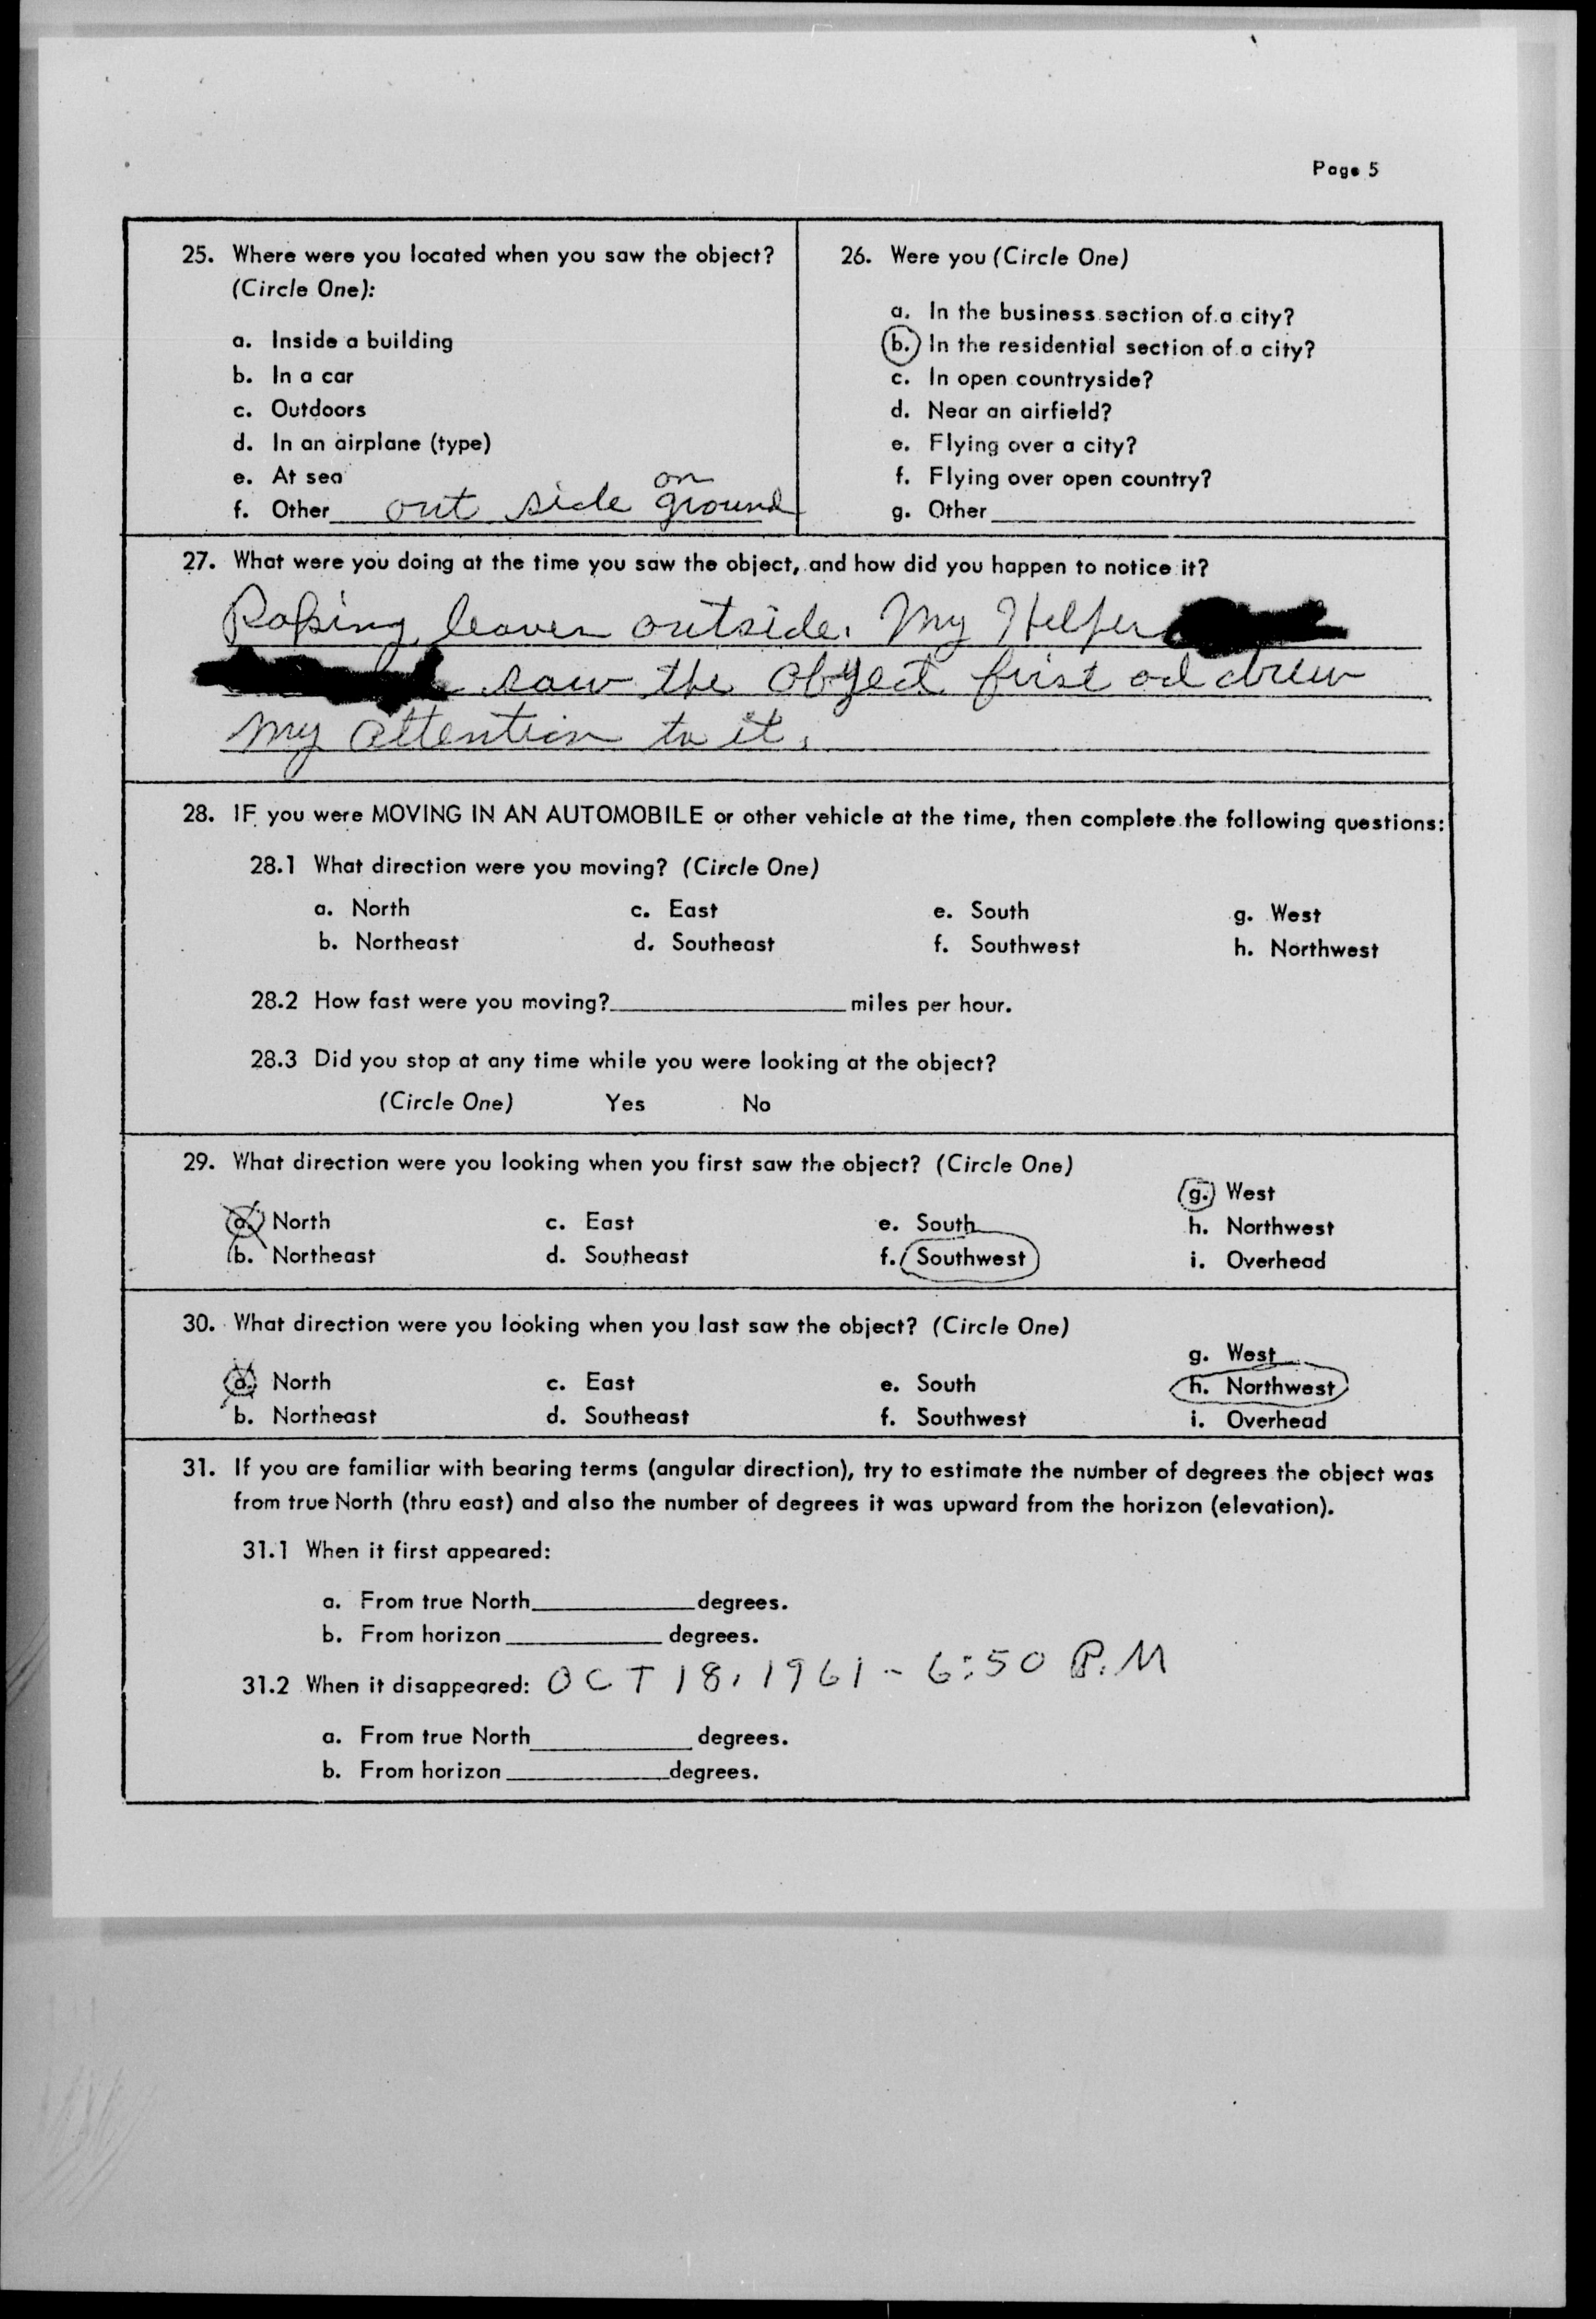 Page 5
25. Where were you located when you saw the object?
(Circle One):
a. Inside a building
b. In a car
c. Outdoors
d. In an airplane (type)
e. At sea
f. Other out side on ground
26. Were you (Circle One)
a. In the business section of a city?
b. In the residential section of a city?
c. In open countryside?
d. Near an airfield?
e. Flying over a city?
f. Flying over open country?
g. Other
27. What were you doing at the time you saw the object, and how did you happen to notice it?
Raking leaves outside. My Helper
saw the object first ad drew
my attention to it.
28. IF you were MOVING IN AN AUTOMOBILE or other vehicle at the time, then complete the following questions:
28.1 What direction were you moving? (Circle One)
a. North c. East e. South g. West
b. Northeast d. Southeast f. Southwest h. Northwest
28.2 How fast were you moving? miles per hour.
28.3 Did you stop at any time while you were looking at the object?
(Circle One) Yes No
29. What direction were you looking when you first saw the object? (Circle One)
g. West
a. North c. East e. South h. Northwest
b. Northeast d. Southeast f. Southwest i. Overhead
30. What direction were you looking when you last saw the object? (Circle One)
g. West
a. North c. East e. South h. Northwest
b. Northeast d. Southeast f. Southwest i. Overhead
31. If you are familiar with bearing terms (angular direction), try to estimate the number of degrees the object was
from true North (thru east) and also the number of degrees it was upward from the horizon (elevation).
31.1 When it first appeared:
a. From true North degrees.
b. From horizon degrees.
31.2 When it disappeared: OCT 18, 1961 - 6:50 P.M
a. From true North degrees.
b. From horizon degrees.